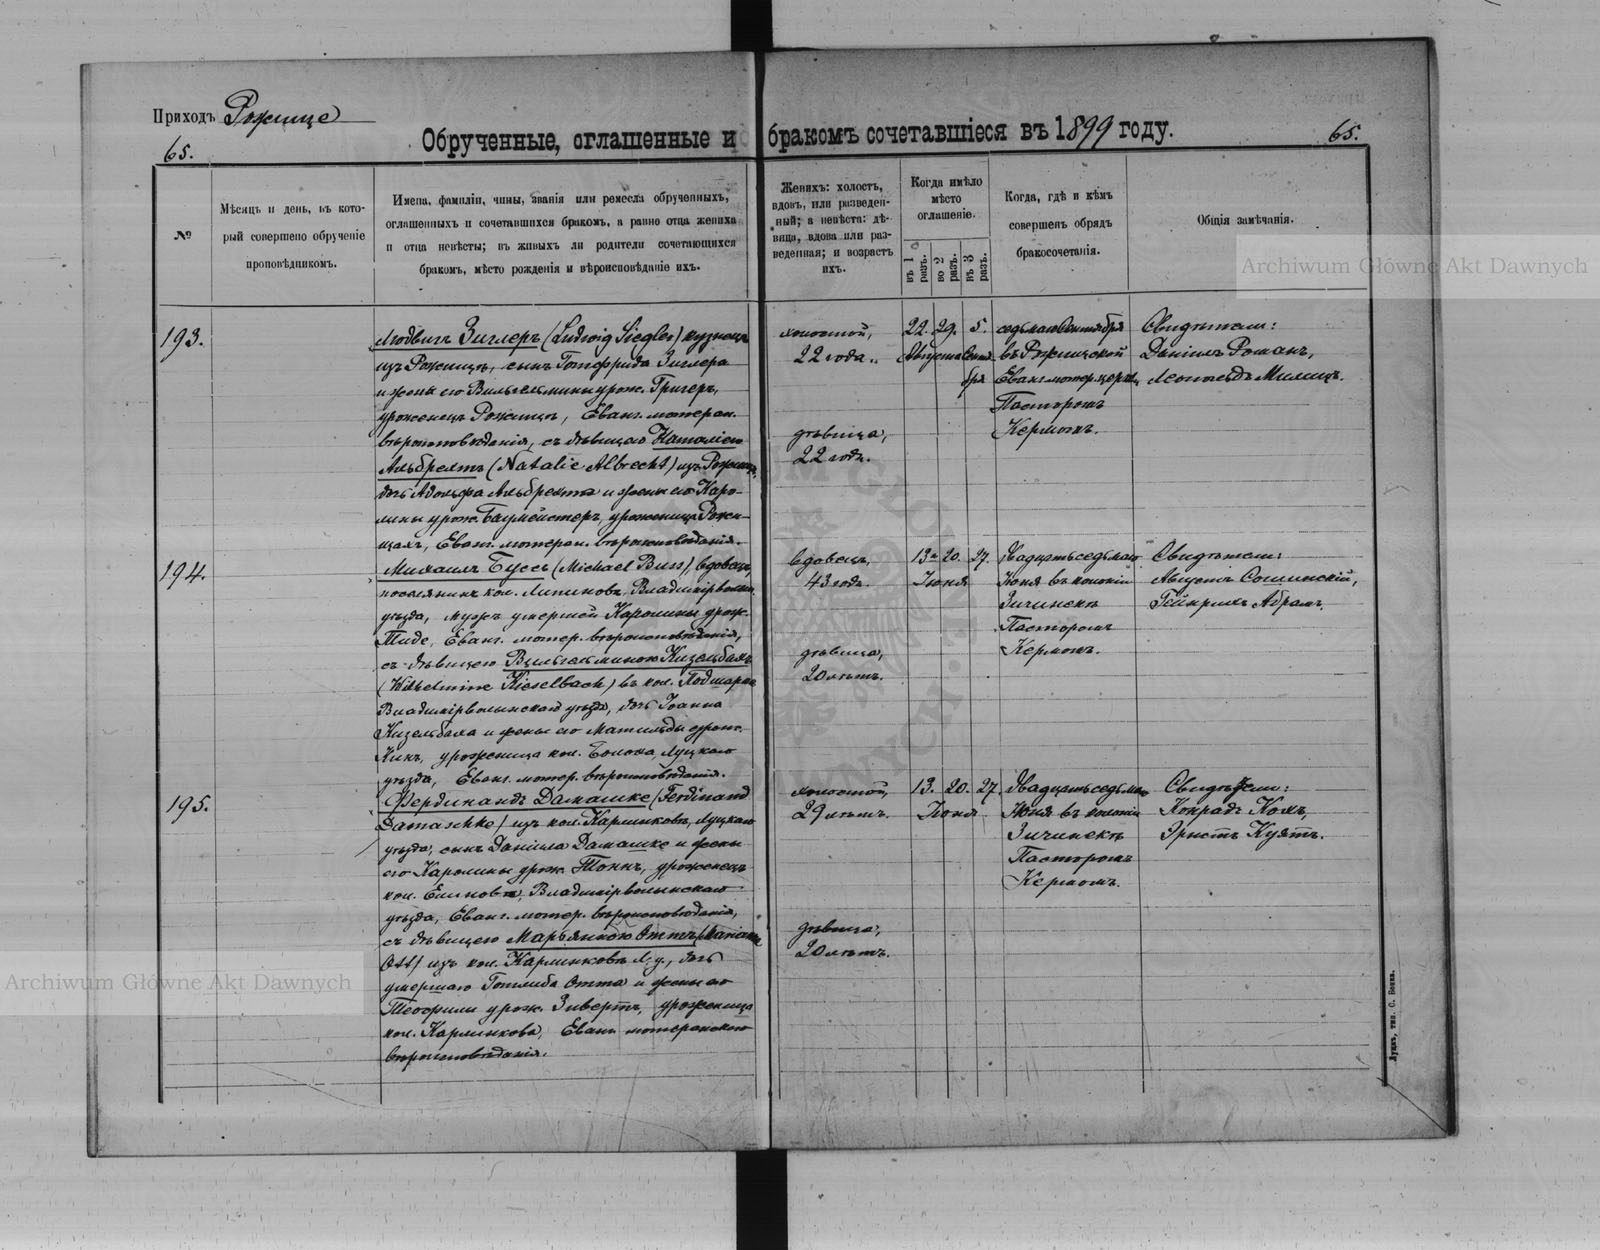 Приходъ Рожище
65.
Обрученные, оглашенные и бракомъ сочетавшіеся въ 1899 году.
65.
№
Мѣсяцъ и день, въ кото-
рый совершено обрученіе
проповѣдникомъ.
Имена, фамиліи, чины, званія или ремесла обрученныхъ,
оглашенныхъ и сочетавшихся бракомъ, а равно отца жениха
и отца невѣсты; въ живыхъ ли родители сочетающихся
бракомъ, мѣсто рожденія и вѣроисповѣданіе ихъ.
Женихъ: холостъ,
вдовъ, или разведен-
ный; а невѣста: дѣ-
вица, вдова или раз-
веденная; и возрастъ
ихъ.
Когда имѣло
мѣсто
оглашеніе.
въ 1 разъ.
во 2 разъ.
въ 3 разъ.
Когда, гдѣ и кѣмъ
совершенъ обрядъ
бракосочетанія.
Общія замѣчанія.
Archiwum Główne Akt Dawnych
193.
Людвигъ Зиглеръ (Ludwig Siegler) кузнецъ
изъ Рожищъ, сынъ Готфрида Зиглера
и жены его Вильгельмины урож. Григеръ,
уроженецъ Рожищъ, Еванг. лютеран.
вѣроисповѣданія, съ дѣвицею Наталіею
Альбрехтъ (Natalie Albrecht) изъ Рожищъ,
дочь Адольфа Альбрехта и жены его Каро-
лины урож. Баумейстеръ, уроженица Рожи-
щахъ, Еванг. лютеран. вѣроисповѣданія.
холостой,
22 года.
дѣвица,
22 года.
22. 29. 5.
Августа Сентя-
бря
седьмого Сентября
въ Рожищской
Еванг. лютер. церкви
Пасторомъ
Кермомъ.
Свидѣтели:
Даніилъ Романъ,
Леопольдъ Милицъ.
194.
Михаилъ Буссъ (Michael Buss), вдовецъ,
поселянинъ кол. Липиновъ, Владимірволын.
уѣзда, мужъ умершей Каролины урож.
Тиде, Еванг. лютер. вѣроисповѣданія,
съ дѣвицею Вильгельминою Кизельбахъ
(Wilhelmine Kieselbach) въ кол.
Владимірволынскаго уѣзда, дочь Іоанна
Кизельбаха и жены его Матильды урож.
Кинъ, уроженица кол. Луцкаго
уѣзда, Еванг. лютер. вѣроисповѣданія.
вдовецъ,
43 года.
дѣвица,
20 лѣтъ.
13. 20. 27.
Іюня
Двадцать седьмого
Іюня въ колоніи
Пасторомъ
Кермомъ.
Свидѣтели:
Августъ Сошинскій,
Гейнрихъ Абрамъ.
195.
Фердинандъ Дамашке (Ferdinand
Damaschke) изъ кол. Карлинковъ, Луцкаго
уѣзда, сынъ Даніила Дамашке и жены
его Каролины урож. Тоннъ, уроженецъ
кол. Елиновъ, Владимірволынскаго
уѣзда, Еванг. лютер. вѣроисповѣданія,
съ дѣвицею Марьянною Оттъ (Marianna
Ott) изъ кол. Карлинковъ Л. у., дочь
умершаго Готлиба Отта и жены его
Теофили урож. Зивертъ, уроженица
кол. Карлинкова, Еванг. лютеранскаго
вѣроисповѣданія.
холостой,
29 лѣтъ.
дѣвица,
20 лѣтъ.
13. 20. 27.
Іюня
Двадцать седьмого
Іюня въ колоніи
Пасторомъ
Кермомъ.
Свидѣтели:
Конрадъ Колъ,
Эрнстъ Куятъ.
Archiwum Główne Akt Dawnych
Луцкъ, тип. С. Бокка.